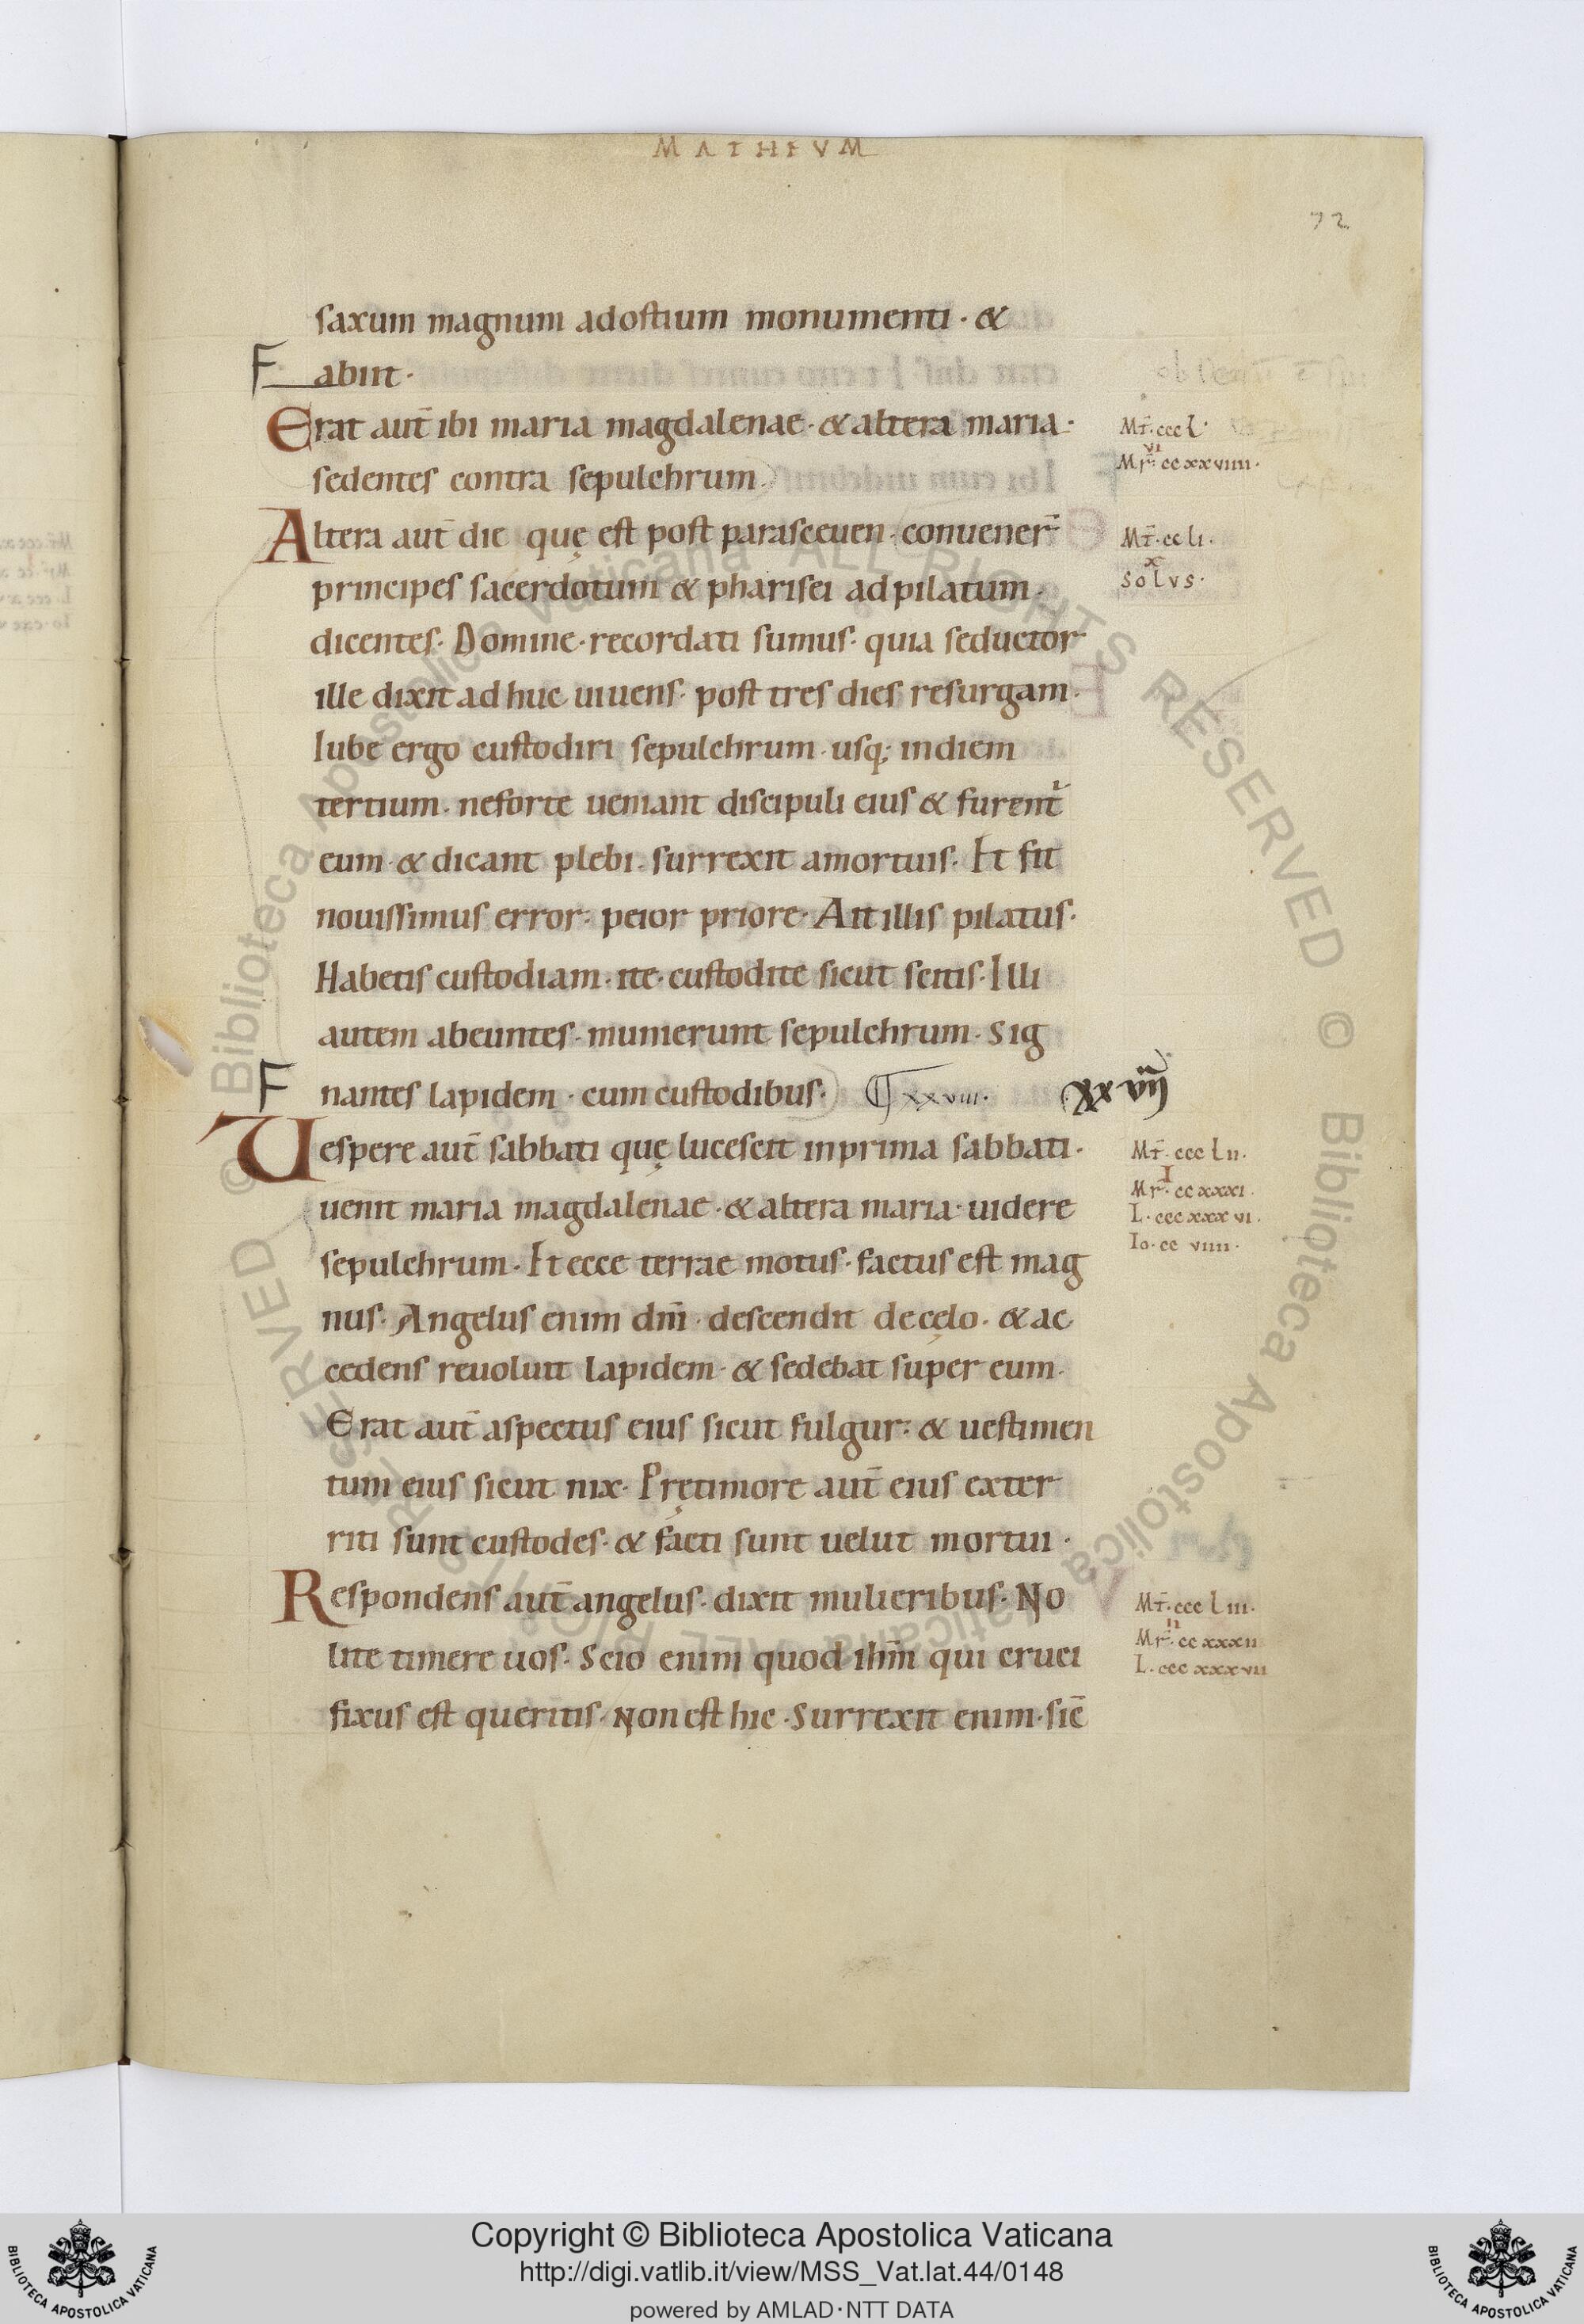 MATHEVM
72
saxum magnum adostium monumenti · &
F abiit ·
Erat aut̄ ibi maria magdalenae · & altera maria ·
Mt̄ · cccl ·
sedentes contra sepulchrum
vi
Mr̄ · ccxxviiii ·
Altera aut̄ die quę est post parasceuen · conuener̄
Mt̄ · ccli ·
principes sacerdotum & pharisei adpilatum ·
x
SOLVS ·
dicentes · Domine · recordati sumus · quia seductor
ille dixit adhuc uiuens · post tres dies resurgam ·
Iube ergo custodiri sepulchrum · usq; indiem
tertium · neforte ueniant discipuli eius & furent᷑
eum · & dicant plebi · surrexit amortuis · Et fit
nouissimus error : peior priore · Ait illis pilatus ·
Habetis custodiam · ite · custodite sicut scitis · Illi
autem abeuntes · munierunt sepulchrum · Sig
F nantes lapidem · cum custodibus · ¶ xxviii · xxviij
Uespere aut̄ sabbati quę lucescit inprima sabbati ·
Mt̄ · ccclii ·
I
uenit maria magdalenae · & altera maria · uidere
Mr̄ · ccxxxi ·
L · cccxxxvi ·
sepulchrum · Et ecce terrae motus · factus est mag
Io · ccviiii ·
nus · Angelus enim dn̄i · descendit decęlo · & ac
cedens reuoluit lapidem · & sedebat super eum ·
Erat aut̄ aspectus eius sicut fulgur : & uestimen
tum eius sicut nix · Prętimore aut̄ eius exter
riti sunt custodes · & facti sunt uelut mortui ·
Respondens aut̄ angelus · dixit mulieribus · No
Mt̄ · cccliii ·
ii
lite timere uos · Scio enim quod ihm̄ qui cruci
Mr̄ · ccxxxii
L · cccxxxvii
fixus est queritis · Non est hic · Surrexit enim · sic̄
© Biblioteca Apostolica Vaticana ALL RIGHTS RESERVED © Biblioteca Apostolica Vaticana ALL RIGHTS RESERVED
Copyright © Biblioteca Apostolica Vaticana
http://digi.vatlib.it/view/MSS_Vat.lat.44/0148
powered by AMLAD·NTT DATA
BIBLIOTECA APOSTOLICA VATICANA
BIBLIOTECA APOSTOLICA VATICANA